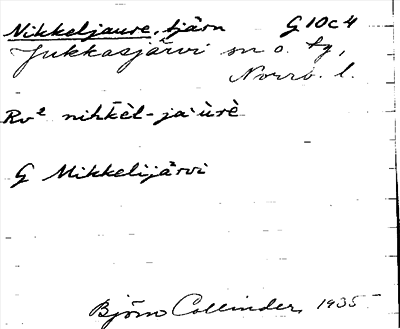 Nikkeljaure, tjärn G10c4
Jukkasjärvi sn o. tg,
Norrb. l.
Rv² nihk̄èl-ja·ùrè
G Mikkelijärvi
Björn Collinder, 1935